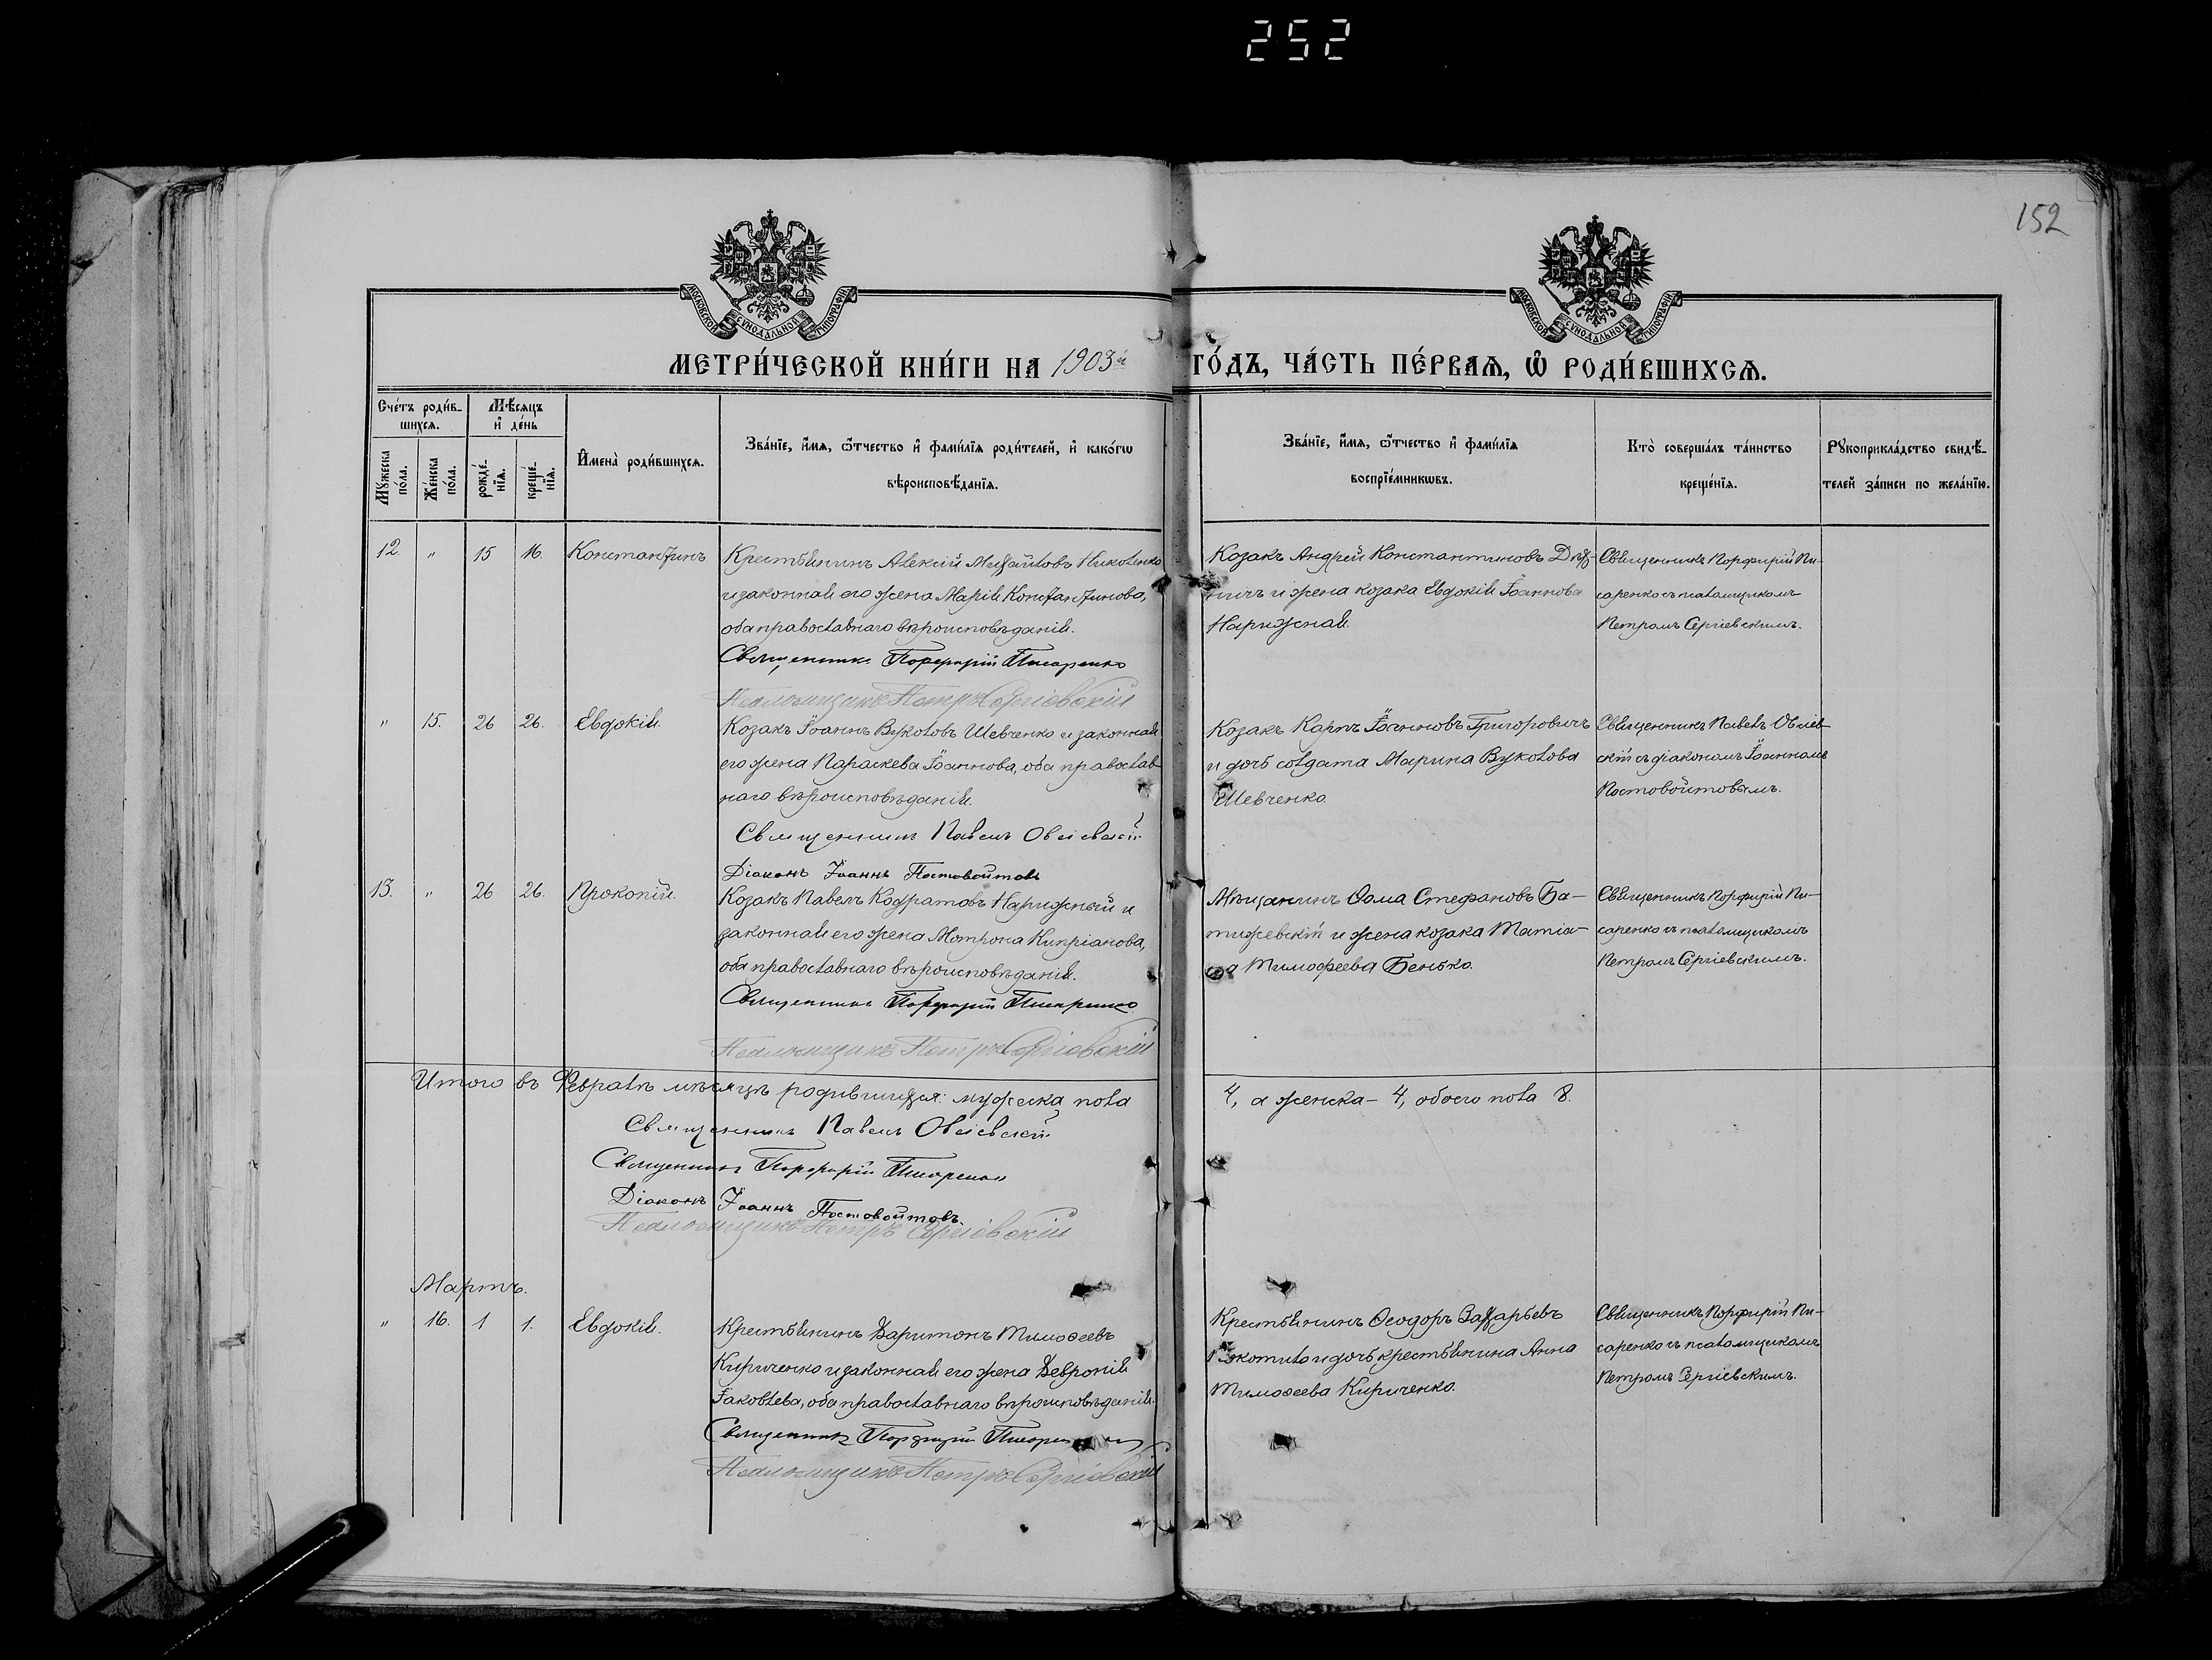 252
152
МОСКОВСКОЙ СѴНОДАЛЬНОЙ ТИПОГРАФІИ
МОСКОВСКОЙ СѴНОДАЛЬНОЙ ТИПОГРАФІИ
МЕТРИ́ЧЕСКОЙ КНИ́ГИ НА 1903й ГО́ДЪ, ЧА́СТЬ ПЕ́РВАѦ, Ѡ҆ РОДИ́ВШИХСѦ.
Сче́тъ роди́в-
шихсѧ.
Мꙋжеска по́ла.
Же́нска по́ла.
Мѣ́сѧцъ
и҆ де́нь
рожде́-
нїѧ.
креще́-
нїѧ.
И҆мена̀ роди́вшихсѧ.
Зва́нїе, и҆́мѧ, ѻ҆́тчество и҆ фами́лїѧ роди́телей, и҆ како́гѡ
вѣроисповѣ́данїѧ.
Зва́нїе, и҆́мѧ, ѻ҆́тчество и҆ фами́лїѧ
воспрїе́мникѡвъ.
Кто̀ соверша́лъ та́инство
креще́нїѧ.
Рꙋкоприкла́дство свидѣ́-
телей за́писи по жела́нїю.
12. " 15 16. Константинъ
Крестьянинъ Алексій Михайловъ Николенко
и законная его жена Марія Константинова,
оба православнаго вѣроисповѣданія.
Священникъ Порфирій Писаренко
Псаломщикъ Петръ Сергіевскій
Козакъ Андрей Константиновъ
и жена козака Евдокія Іоаннова
Нарижная.
Священникъ Порфирій Пи-
саренко съ псаломщикомъ
Петромъ Сергіевскимъ.
" 15. 26 26. Евдокія.
Козакъ Іоаннъ Вуколовъ Шевченко и законная
его жена Параскева Іоаннова, оба православ-
наго вѣроисповѣданія.
Священникъ Павелъ Овсіевскій
Діаконъ Іоаннъ Постовойтовъ
Козакъ Карпъ Іоанновъ Григоровичъ
и дочь солдата Марина Вуколова
Шевченко.
Священникъ Павелъ Овсіев-
скій съ діакономъ Іоанномъ
Постовойтовымъ.
13. " 26 26. Прокопій.
Козакъ Павелъ Кодратовъ Нарижный и
законная его жена Мотрона Кипріанова,
оба православнаго вѣроисповѣданія.
Священникъ Порфирій Писаренко
Псаломщикъ Петръ Сергіевскій
Мѣщанинъ Ѳома Стефановъ Ба-
тижевскій и жена козака Татіа-
на Тимофеева Бенько.
Священникъ Порфирій Пи-
саренко съ псаломщикомъ
Петромъ Сергіевскимъ.
Итого въ Февралѣ мѣсяцѣ родившихся: мужеска пола 4, а женска - 4, обоего пола 8.
Священникъ Павелъ Овсіевскій
Священникъ Порфирій Писаренко
Діаконъ Іоаннъ Постовойтовъ.
Псаломщикъ Петръ Сергіевскій
Мартъ.
" 16. 1 1. Евдокія.
Крестьянинъ Харитонъ Тимоѳеевъ
Кириченко и законная его жена Хевронія
Іаковлева, оба православнаго вѣроисповѣданія.
Священникъ Порфирій
Псаломщикъ Петръ Сергіевскій
Крестьянинъ Ѳеодоръ Захарьевъ
и дочь крестьянина Анна
Тимоѳеева Кириченко.
Священникъ Порфирій Пи-
саренко съ псаломщикомъ
Петромъ Сергіевскимъ.